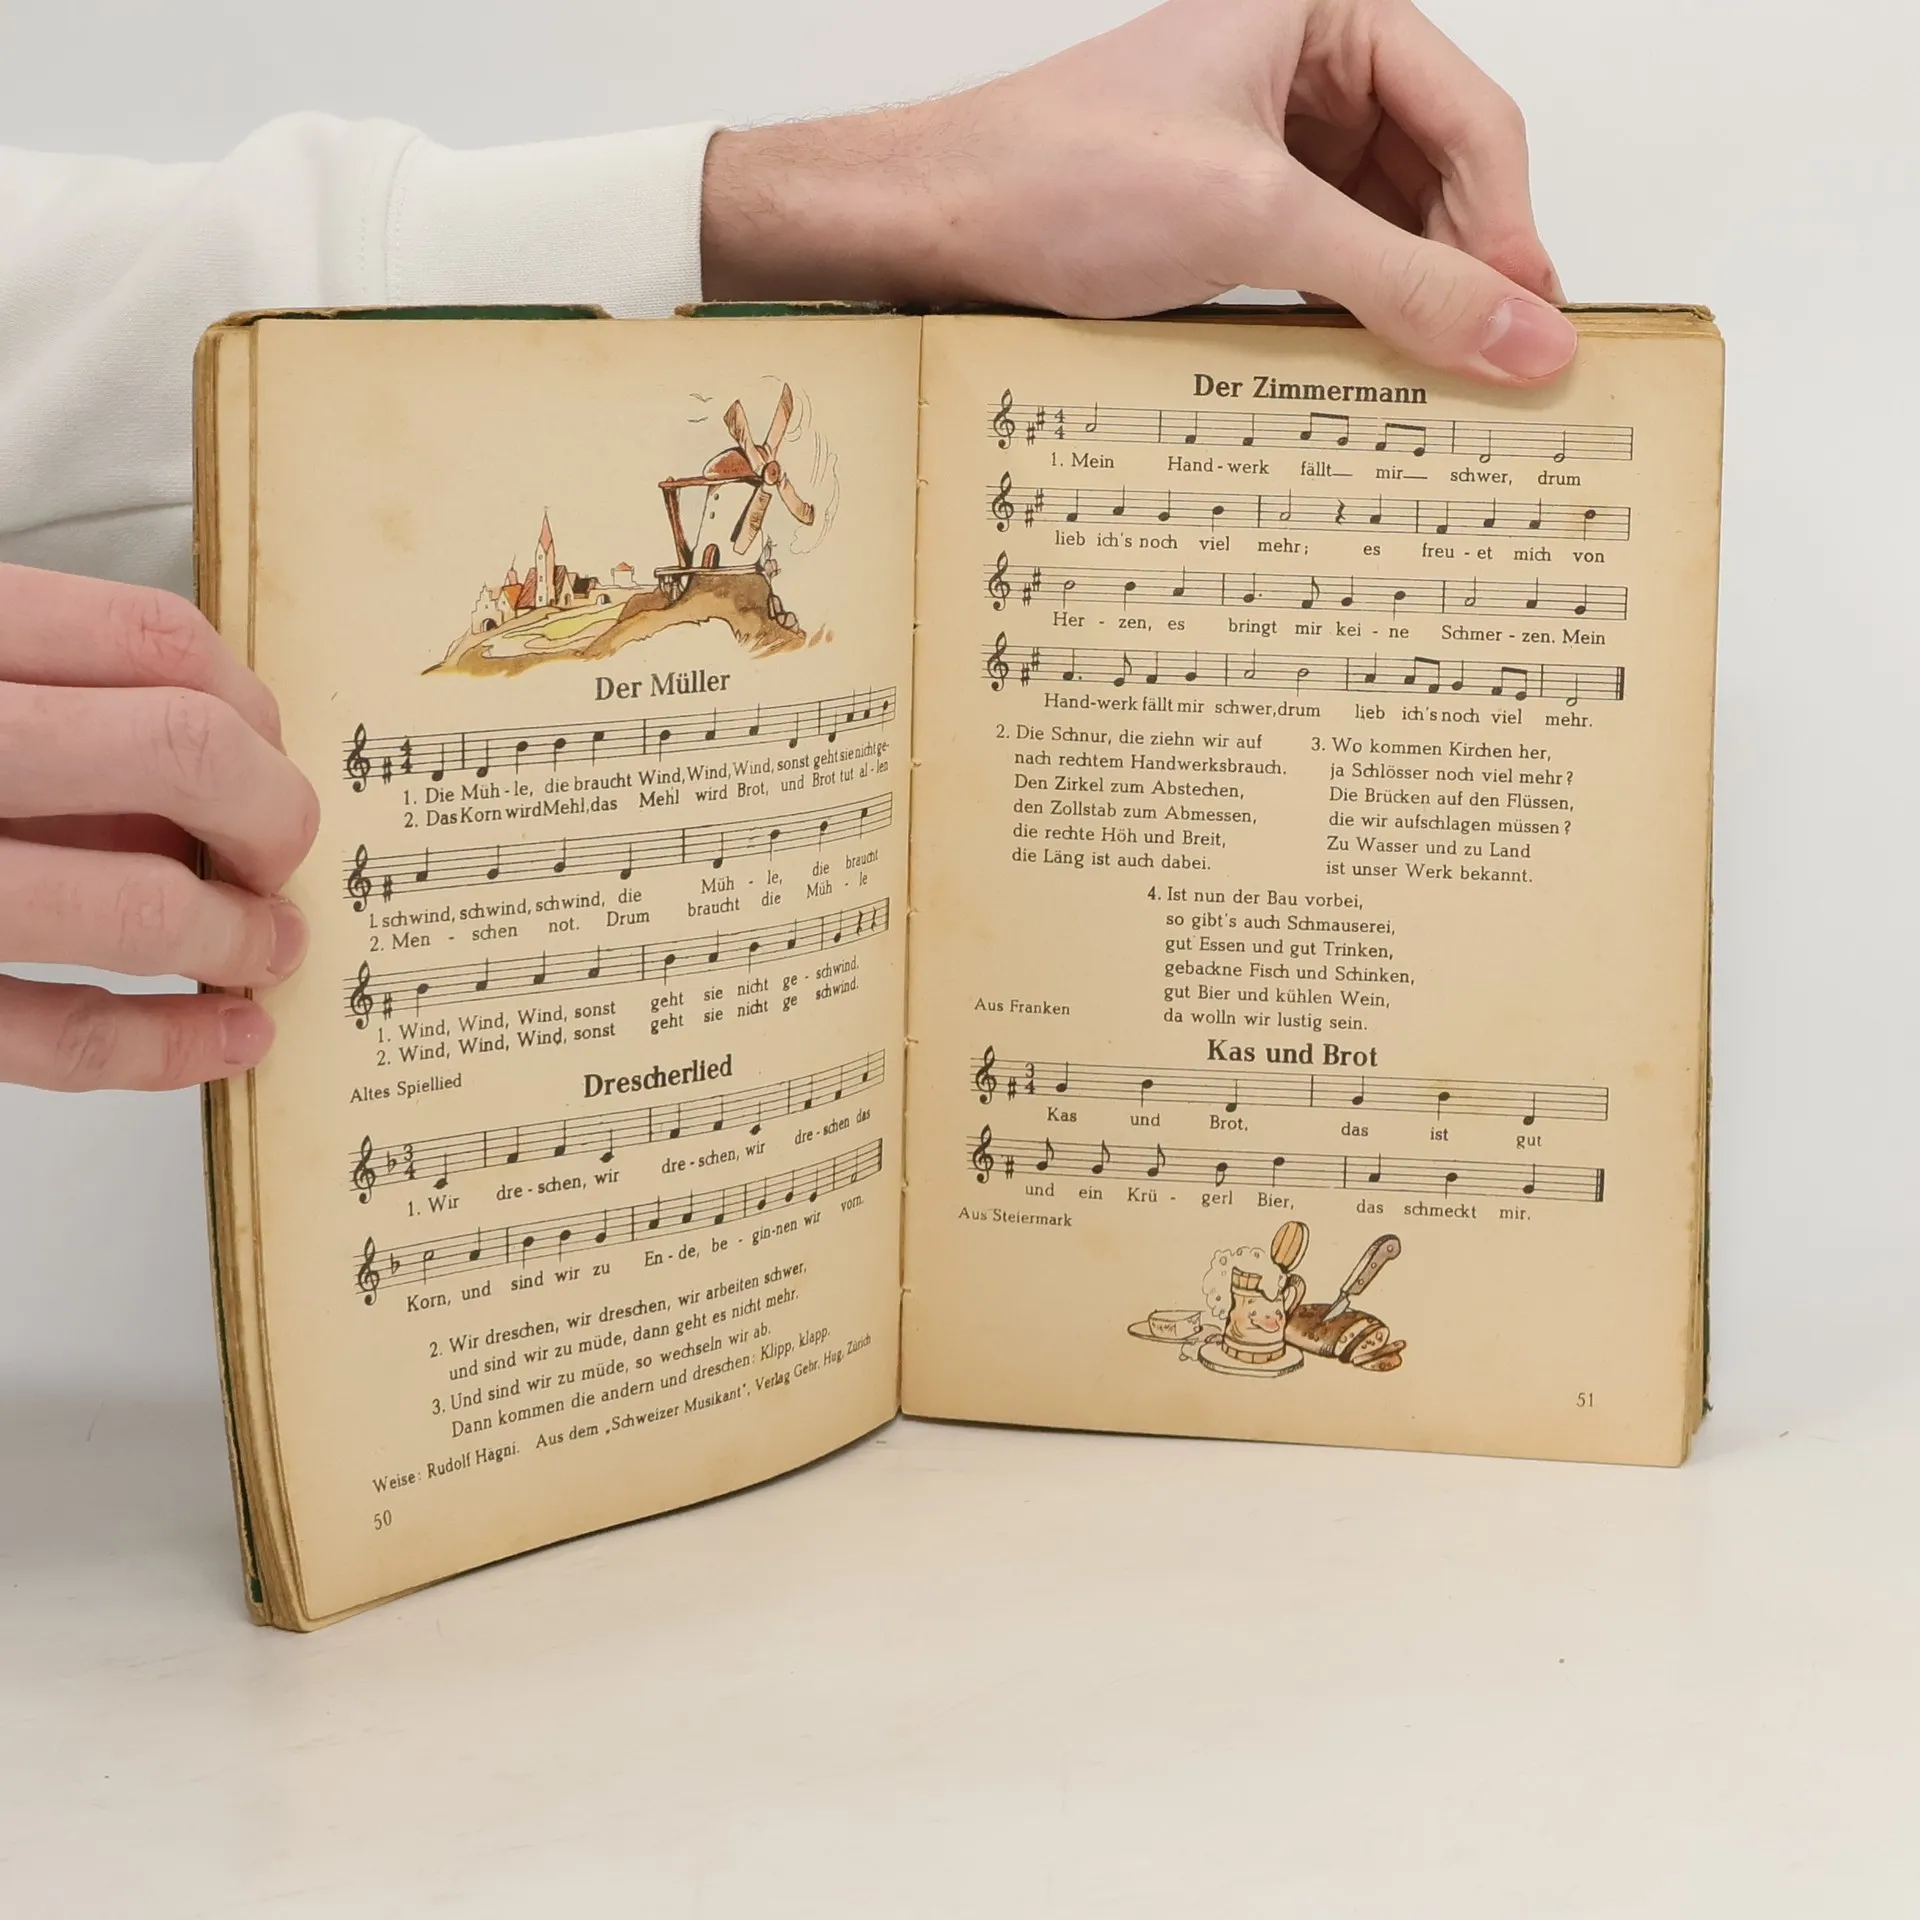 Der Müller
1. Die Müh - le, die braucht Wind, Wind, Wind, sonst geht sie nicht ge-
2. Das Korn wird Mehl, das Mehl wird Brot, und Brot tut al - len
1. schwind, schwind, schwind, die Müh - le, die braucht
2. Men - schen not. Drum braucht die Müh - le
1. Wind, Wind, Wind, sonst geht sie nicht ge - schwind.
2. Wind, Wind, Wind, sonst geht sie nicht ge schwind.
Altes Spiellied
Drescherlied
1. Wir dre - schen, wir dre - schen, wir dre - schen das
Korn, und sind wir zu En - de, be - gin-nen wir vorn.
2. Wir dreschen, wir dreschen, wir arbeiten schwer,
und sind wir zu müde, dann geht es nicht mehr.
3. Und sind wir zu müde, so wechseln wir ab.
Dann kommen die andern und dreschen: Klipp, klapp.
Weise: Rudolf Hägni. Aus dem „Schweizer Musikant", Verlag Gebr. Hug, Zürich
50
Der Zimmermann
1. Mein Hand - werk fällt mir schwer, drum
lieb ich's noch viel mehr; es freu - et mich von
Her - zen, es bringt mir kei - ne Schmer - zen. Mein
Hand-werk fällt mir schwer, drum lieb ich's noch viel mehr.
2. Die Schnur, die ziehn wir auf
nach rechtem Handwerksbrauch.
Den Zirkel zum Abstechen,
den Zollstab zum Abmessen,
die rechte Höh und Breit,
die Läng ist auch dabei.
3. Wo kommen Kirchen her,
ja Schlösser noch viel mehr?
Die Brücken auf den Flüssen,
die wir aufschlagen müssen?
Zu Wasser und zu Land
ist unser Werk bekannt.
4. Ist nun der Bau vorbei,
so gibt's auch Schmauserei,
gut Essen und gut Trinken,
gebackne Fisch und Schinken,
gut Bier und kühlen Wein,
da wolln wir lustig sein.
Aus Franken
Kas und Brot
Kas und Brot, das ist gut
und ein Krü - gerl Bier, das schmeckt mir.
Aus Steiermark
51